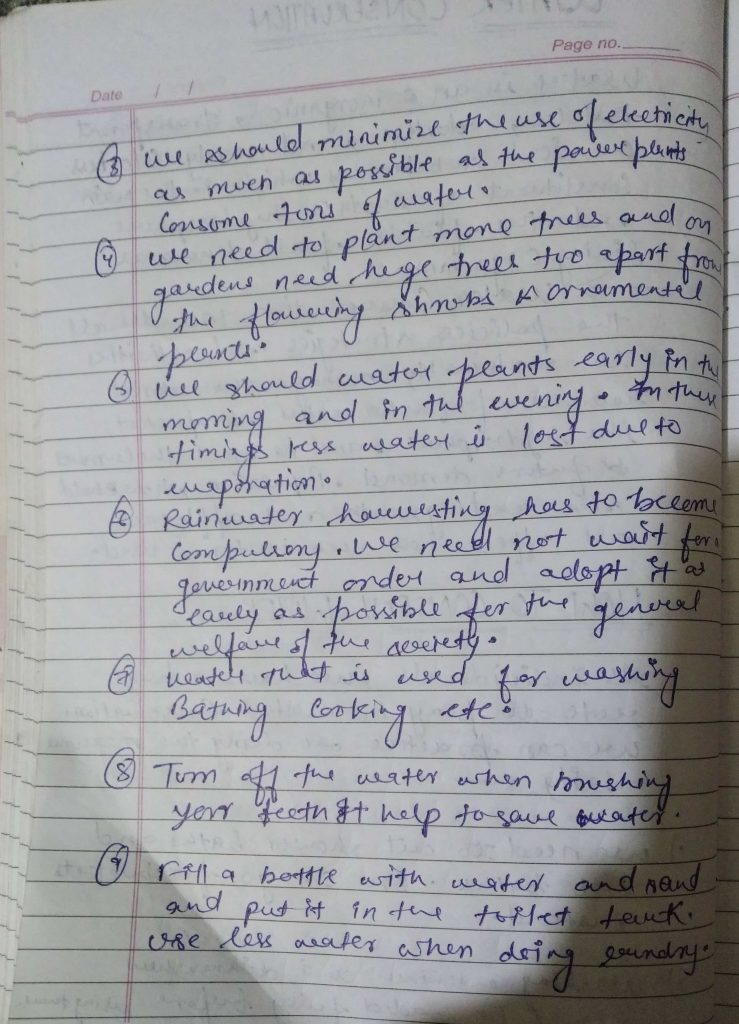 Page no.
Date / /
(3) we should minimize the use of electricity
as much as possible as the power plants
Consome tons of water.
(4) we need to plant more trees and on
gardens need huge trees too apart from
the flowering shrubs & ornamental
plants.
(5) we should water plants early in the
morning and in the evening. In these
timings less water is lost due to
evaporation.
(6) Rainwater harvesting has to become
Compulsory. We need not wait for
government order and adopt it as
early as possible for the general
welfare of the society.
(7) water that is used for washing
Bathing Cooking etc.
(8) Turn off the water when brushing
your teeth It help to save water.
(9) Fill a bottle with water and sand
and put it in the toilet tank.
use less water when doing laundry.